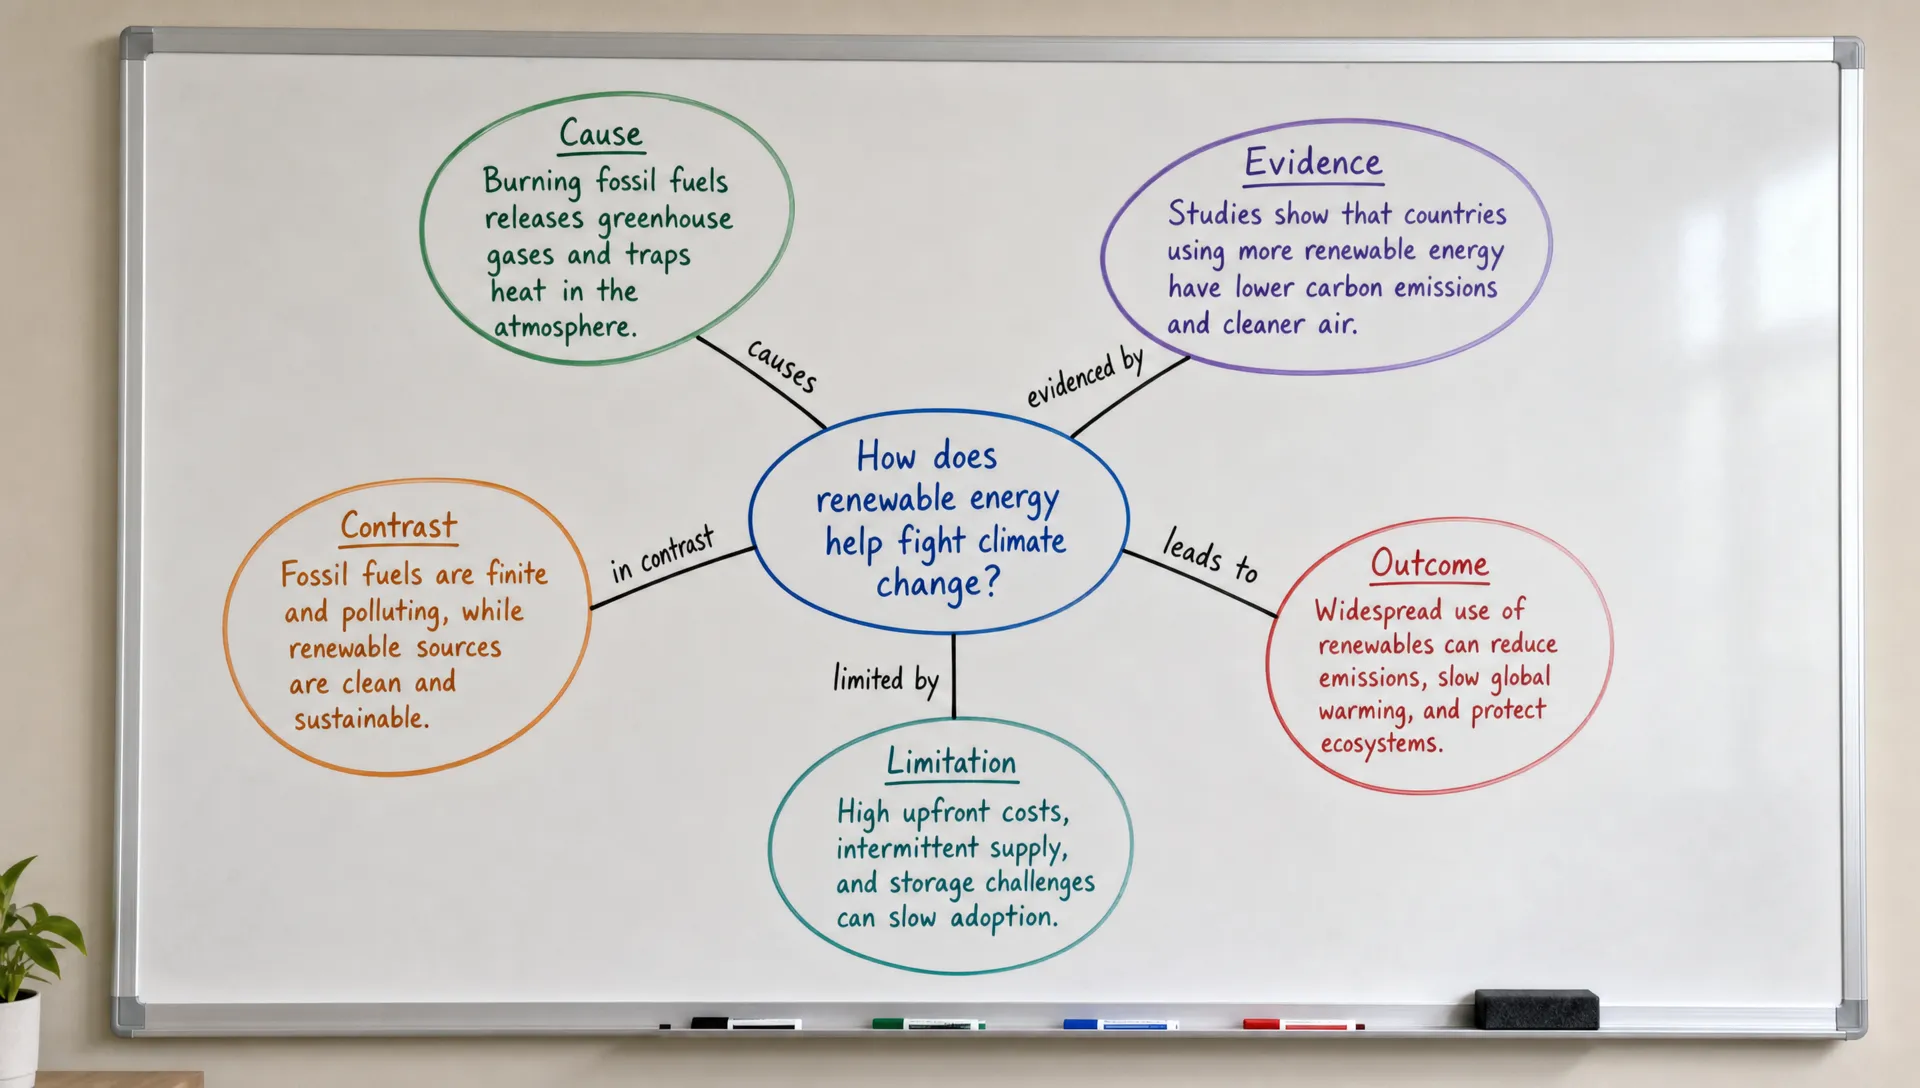 Cause
Burning fossil fuels
releases greenhouse
gases and traps
heat in the
atmosphere.
causes
Evidence
Studies show that countries
using more renewable energy
have lower carbon emissions
and cleaner air.
evidenced by
How does
renewable energy
help fight climate
change?
Contrast
Fossil fuels are finite
and polluting, while
renewable sources
are clean and
sustainable.
in contrast
leads to
Outcome
Widespread use of
renewables can reduce
emissions, slow global
warming, and protect
ecosystems.
limited by
Limitation
High upfront costs,
intermittent supply,
and storage challenges
can slow adoption.